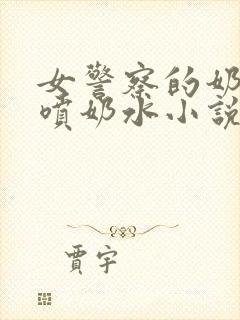 女警察的奶
噴奶水小說
賈宇